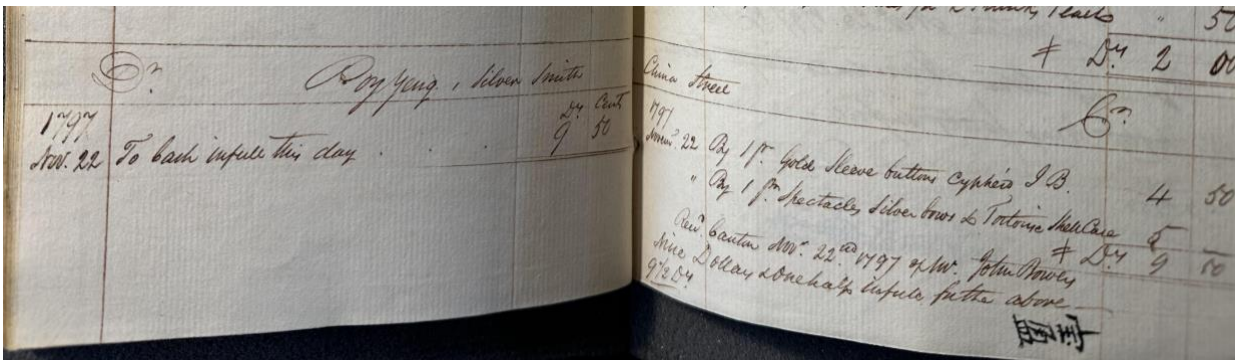 Dr.
Poy Yeng, Silver Smith
Drs Cents
1797
Nov. 22 To Cash in full this day . . . . 9 50
Pearls " 50
# Drs 2 00
China Street
Cr.
1797
Novemr. 22 By 1 pr. Gold Sleeve buttons Cypher'd I B. 4 50
" By 1 pr. Spectacles, Silver bows & Tortoise Shell Case 5
# Drs 9 50
Recd. Canton Novr. 22nd 1797 of Mr. John Bowers
Nine Dollars & one half in full for the above
9 1/2 Drs